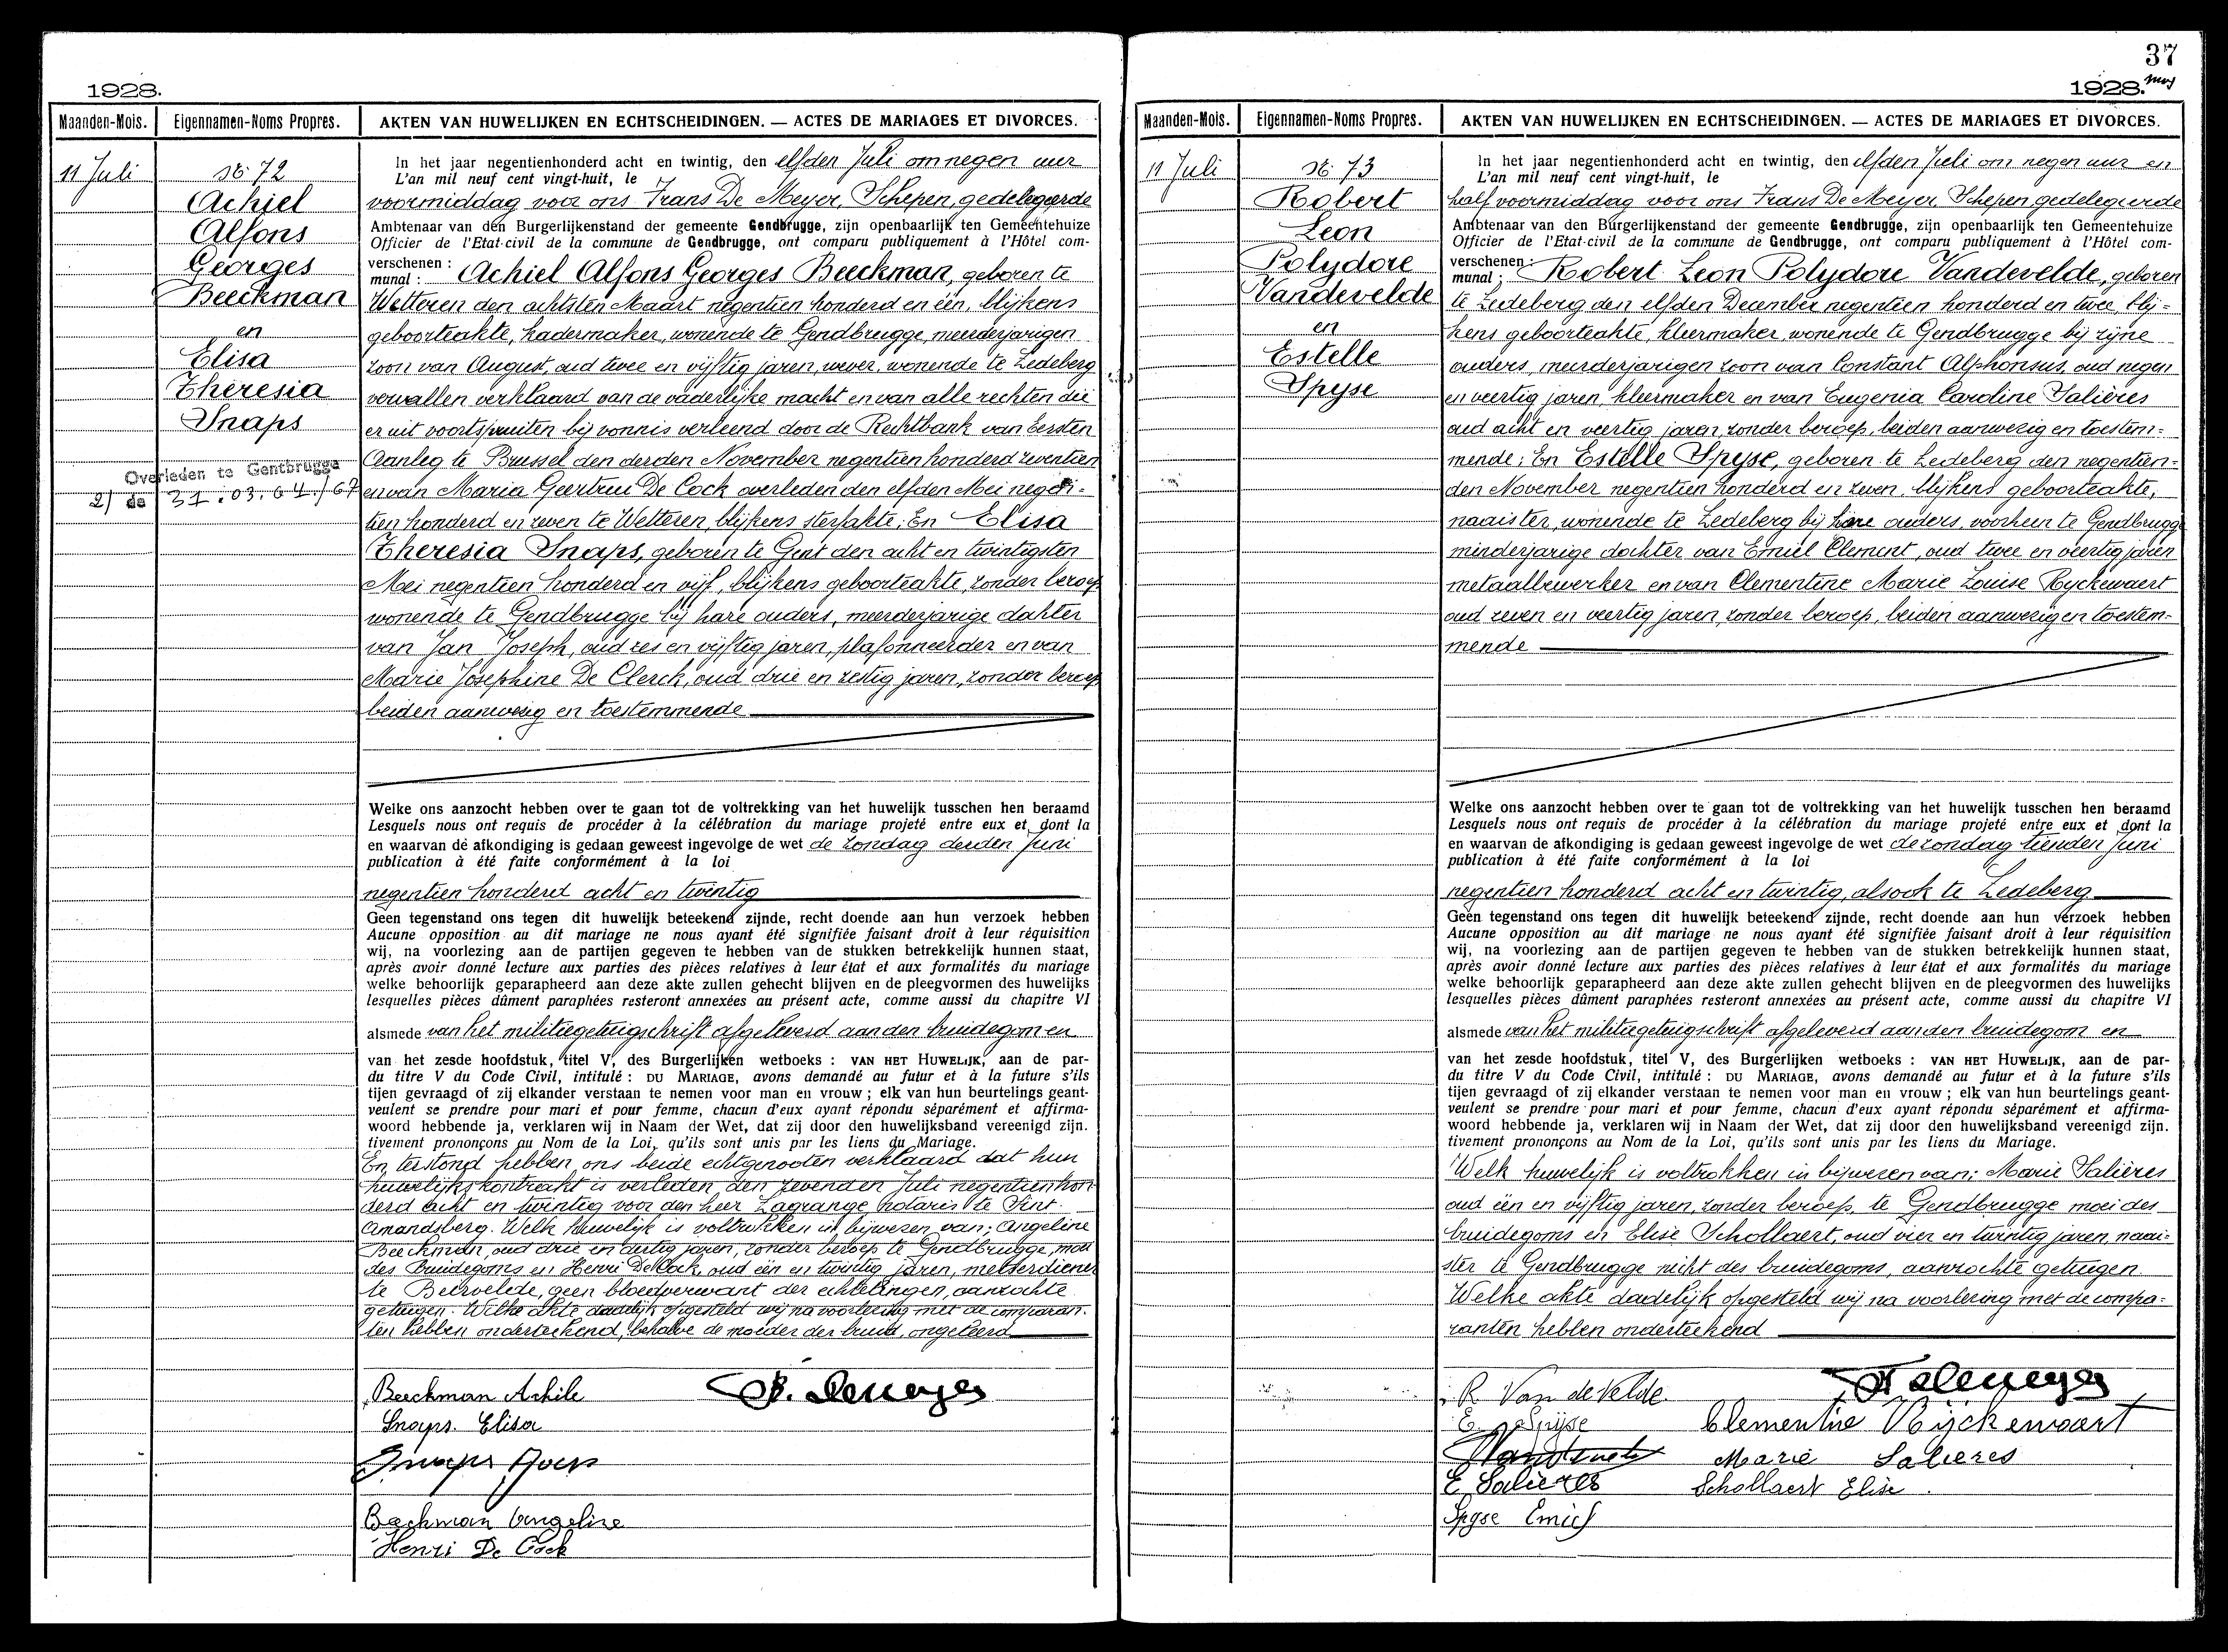 1928.
Maanden-Mois.
Eigennamen-Noms Propres.
AKTEN VAN HUWELIJKEN EN ECHTSCHEIDINGEN. — ACTES DE MARIAGES ET DIVORCES.
11 Juli
N. 72
Achiel
Alfons
Georges
Beeckman
en
Elisa
Theresia
Snaps
Overleden te Gentbrugge
2/ de 31.03.64./67
In het jaar negentienhonderd acht en twintig, den elfden Juli om negen uur
L'an mil neuf cent vingt-huit, le
voormiddag voor ons Frans De Meyer, Schepen, gedelegeerde
Ambtenaar van den Burgerlijkenstand der gemeente Gendbrugge, zijn openbaarlijk ten Gemeentehuize
Officier de l'Etat-civil de la commune de Gendbrugge, ont comparu publiquement à l'Hôtel com-
verschenen : Achiel Alfons Georges Beeckman, geboren te
munal :
Wetteren den achtsten Maart negentien honderd en één, blijkens
geboorteakte, kadermaker, wonende te Gendbrugge, meerderjarigen
zoon van August, oud twee en vijftig jaren, wever, wonende te Ledeberg
vervallen verklaard van de vaderlijke macht en van alle rechten die
er uit voortspruiten bij vonnis verleend door de Rechtbank van Eersten
Aanleg te Brussel den derden November negentien honderd zeventien
en van Maria Geertrui De Cock overleden den elfden Mei negen-
tien honderd en zeven te Wetteren, blijkens sterfakte; En Elisa
Theresia Snaps, geboren te Gent den acht en twintigsten
Mei negentien honderd en vijf, blijkens geboorteakte, zonder beroep
wonende te Gendbrugge bij hare ouders, meerderjarige dochter
van Jan Joseph, oud zes en vijftig jaren, plafonneerder en van
Marie Josephine De Clerck, oud drie en zestig jaren, zonder beroep
beiden aanwezig en toestemmende
Welke ons aanzocht hebben over te gaan tot de voltrekking van het huwelijk tusschen hen beraamd
Lesquels nous ont requis de procéder à la célébration du mariage projeté entre eux et dont la
en waarvan de afkondiging is gedaan geweest ingevolge de wet de zondag derden Juni
publication à été faite conformément à la loi
negentien honderd acht en twintig
Geen tegenstand ons tegen dit huwelijk beteekend zijnde, recht doende aan hun verzoek hebben
Aucune opposition au dit mariage ne nous ayant été signifiée faisant droit à leur réquisition
wij, na voorlezing aan de partijen gegeven te hebben van de stukken betrekkelijk hunnen staat,
après avoir donné lecture aux parties des pièces relatives à leur état et aux formalités du mariage
welke behoorlijk geparapheerd aan deze akte zullen gehecht blijven en de pleegvormen des huwelijks
lesquelles pièces dûment paraphées resteront annexées au présent acte, comme aussi du chapitre VI
alsmede van het militiegetuigschrift afgeleverd aan den bruidegom en
van het zesde hoofdstuk, titel V, des Burgerlijken wetboeks : VAN HET HUWELIJK, aan de par-
du titre V du Code Civil, intitulé : DU MARIAGE, avons demandé au futur et à la future s'ils
tijen gevraagd of zij elkander verstaan te nemen voor man en vrouw ; elk van hun beurtelings geant-
veulent se prendre pour mari et pour femme, chacun d'eux ayant répondu séparément et affirma-
woord hebbende ja, verklaren wij in Naam der Wet, dat zij door den huwelijksband vereenigd zijn.
tivement prononçons au Nom de la Loi, qu'ils sont unis par les liens du Mariage.
En terstond hebben ons beide echtgenooten verklaard dat hun
huwelijkskontrakt is verleden den zevenden Juli negentien hon-
derd acht en twintig voor den heer Lagrange notaris te Sint
Amandsberg. Welk huwelijk is voltrokken in bijwezen van; Angeline
Beeckman, oud drie en dertig jaren, zonder beroep te Gendbrugge, moei
des bruidegoms en Henri De Cock, oud één en twintig jaren, metserdiener
te Beirvelde, geen bloedverwant der echtelingen, aanzochte
getuigen. Welke akte dadelijk opgesteld wij na voorlezing met de comparan-
ten hebben onderteekend, behalve de moeder der bruid, ongeleerd
Beeckman Achile
F. Demeyer
Snaps. Elisa
Snaps
Beeckman Angeline
Henri De Cock
37
1928.
Maanden-Mois.
Eigennamen-Noms Propres.
AKTEN VAN HUWELIJKEN EN ECHTSCHEIDINGEN. — ACTES DE MARIAGES ET DIVORCES.
11 Juli
N. 73
Robert
Leon
Polydore
Vandevelde
en
Estelle
Spyse
In het jaar negentienhonderd acht en twintig, den elfden Juli om negen uur en
L'an mil neuf cent vingt-huit, le
half voormiddag voor ons Frans De Meyer, Schepen gedelegeerde
Ambtenaar van den Burgerlijkenstand der gemeente Gendbrugge, zijn openbaarlijk ten Gemeentehuize
Officier de l'Etat-civil de la commune de Gendbrugge, ont comparu publiquement à l'Hôtel com-
verschenen : Robert Leon Polydore Vandevelde, geboren
munal :
te Ledeberg den elfden December negentien honderd en twee, blij-
kens geboorteakte, kleermaker, wonende te Gendbrugge bij zijne
ouders, meerderjarigen zoon van Constant Alphonsus, oud negen
en veertig jaren, kleermaker en van Eugenia Caroline Salières
oud acht en veertig jaren, zonder beroep, beiden aanwezig en toestem-
mende; En Estelle Spyse, geboren te Ledeberg den negentien-
den November negentien honderd en zeven, blijkens geboorteakte,
naaister, wonende te Ledeberg bij hare ouders, voorheen te Gendbrugge
minderjarige dochter van Emiel Clement, oud twee en veertig jaren
metaalbewerker en van Clementine Marie Louise Ryckewaert
oud zeven en veertig jaren, zonder beroep, beiden aanwezig en toestem-
mende
Welke ons aanzocht hebben over te gaan tot de voltrekking van het huwelijk tusschen hen beraamd
Lesquels nous ont requis de procéder à la célébration du mariage projeté entre eux et dont la
en waarvan de afkondiging is gedaan geweest ingevolge de wet de zondag tienden Juni
publication à été faite conformément à la loi
negentien honderd acht en twintig, alsook te Ledeberg
Geen tegenstand ons tegen dit huwelijk beteekend zijnde, recht doende aan hun verzoek hebben
Aucune opposition au dit mariage ne nous ayant été signifiée faisant droit à leur réquisition
wij, na voorlezing aan de partijen gegeven te hebben van de stukken betrekkelijk hunnen staat,
après avoir donné lecture aux parties des pièces relatives à leur état et aux formalités du mariage
welke behoorlijk geparapheerd aan deze akte zullen gehecht blijven en de pleegvormen des huwelijks
lesquelles pièces dûment paraphées resteront annexées au présent acte, comme aussi du chapitre VI
alsmede van het militiegetuigschrift afgeleverd aan den bruidegom en
van het zesde hoofdstuk, titel V, des Burgerlijken wetboeks : VAN HET HUWELIJK, aan de par-
du titre V du Code Civil, intitulé : DU MARIAGE, avons demandé au futur et à la future s'ils
tijen gevraagd of zij elkander verstaan te nemen voor man en vrouw ; elk van hun beurtelings geant-
veulent se prendre pour mari et pour femme, chacun d'eux ayant répondu séparément et affirma-
woord hebbende ja, verklaren wij in Naam der Wet, dat zij door den huwelijksband vereenigd zijn.
tivement prononçons au Nom de la Loi, qu'ils sont unis par les liens du Mariage.
Welk huwelijk is voltrokken in bijwezen van; Marie Salières
oud één en vijftig jaren, zonder beroep, te Gendbrugge moei des
bruidegoms en Elise Schollaert, oud vier en twintig jaren, naai-
ster te Gendbrugge nicht des bruidegoms, aanzochte getuigen.
Welke akte dadelijk opgesteld wij na voorlezing met de compa-
ranten hebben onderteekend
R Van de Velde
F Demeyer
E. Spijse
Clementine Rijckewaert
Marie Salieres
E Salieres
Schollaert Elise.
Spyse Emiel